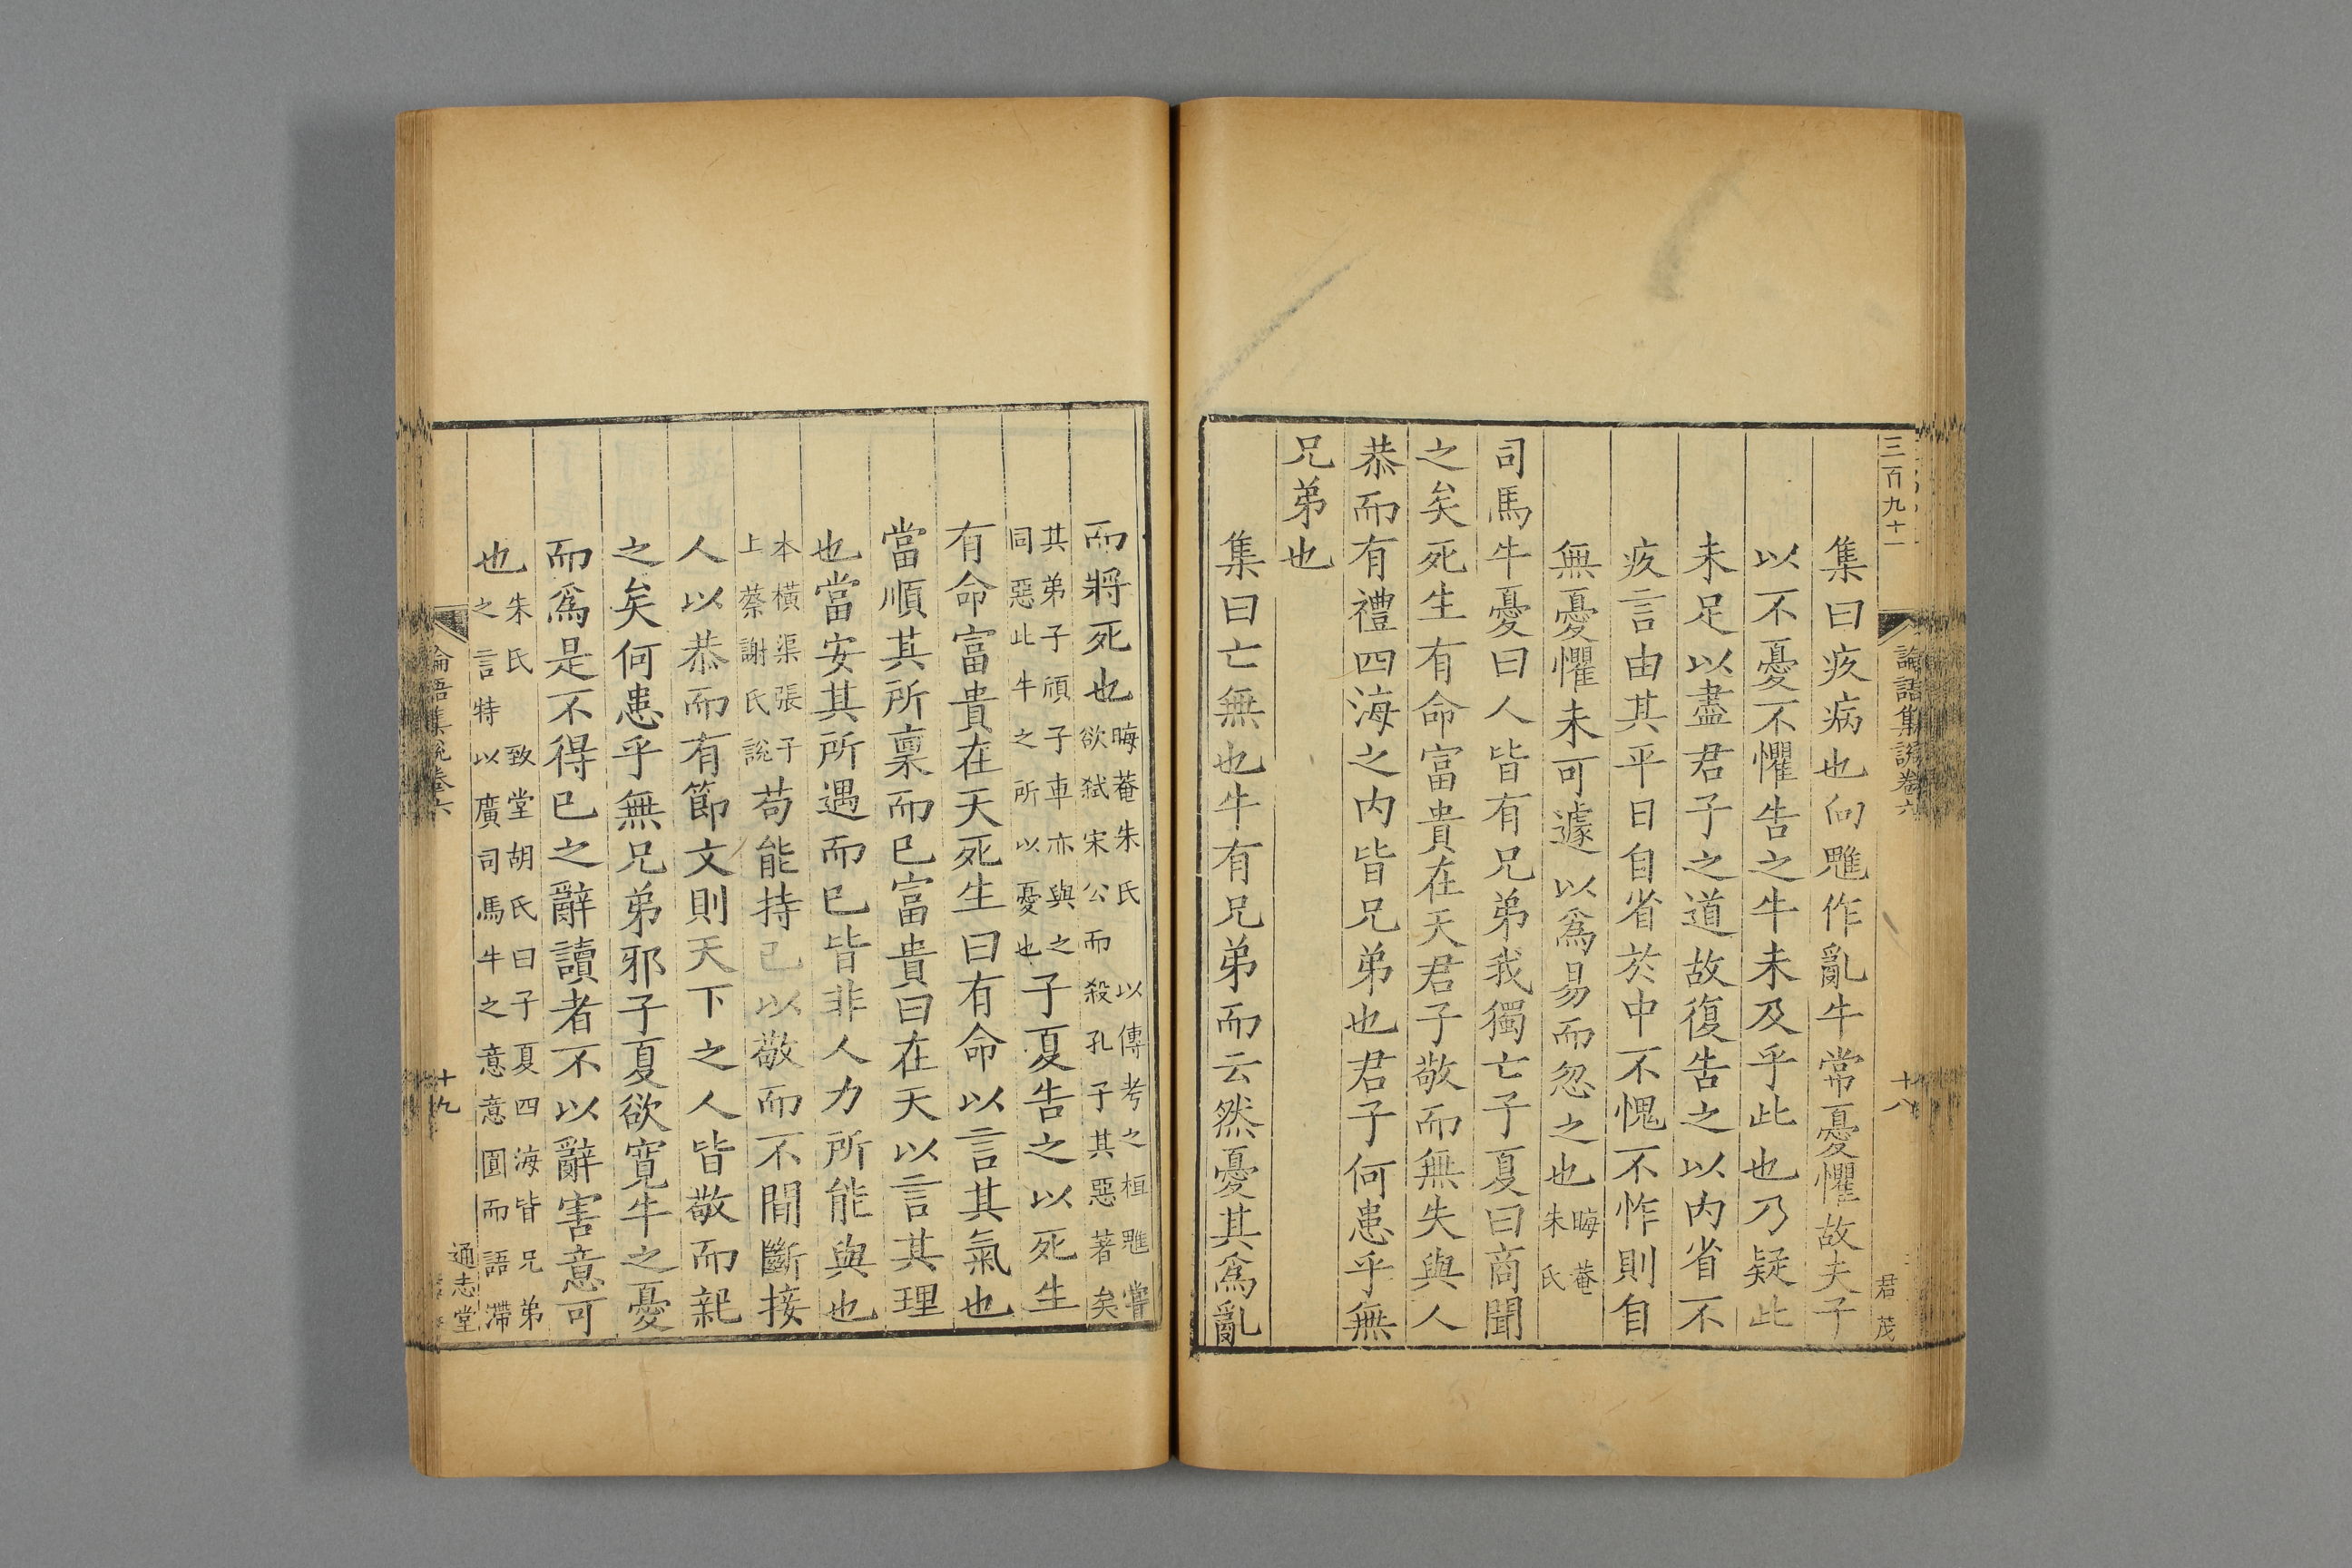 三百九十一
論語集說卷六
十八
君茂
集曰疚病也向魋作亂牛常憂懼故夫子
以不憂不懼告之牛未及乎此也乃疑此
未足以盡君子之道故復告之以内省不
疚言由其平日自省於中不愧不怍則自
無憂懼未可遽以爲易而忽之也晦菴
朱氏
司馬牛憂曰人皆有兄弟我獨亡子夏曰商聞
之矣死生有命富貴在天君子敬而無失與人
恭而有禮四海之内皆兄弟也君子何患乎無
兄弟也
集曰亡無也牛有兄弟而云然憂其爲亂
而將死也晦菴朱氏 以傳考之桓魋嘗
欲弑宋公而殺孔子其惡著矣
其弟子頎子車亦與之
同惡此牛之所以憂也子夏告之以死生
有命富貴在天死生曰有命以言其氣也
當順其所稟而已富貴曰在天以言其理
也當安其所遇而已皆非人力所能與也
本橫渠張子
上蔡謝氏說苟能持己以敬而不間斷接
人以恭而有節文則天下之人皆敬而親
之矣何患乎無兄弟邪子夏欲寬牛之憂
而爲是不得已之辭讀者不以辭害意可
也朱氏 致堂胡氏曰子夏四海皆兄弟
之言特以廣司馬牛之意意圓而語滯
論語集說卷六
十九
通志堂